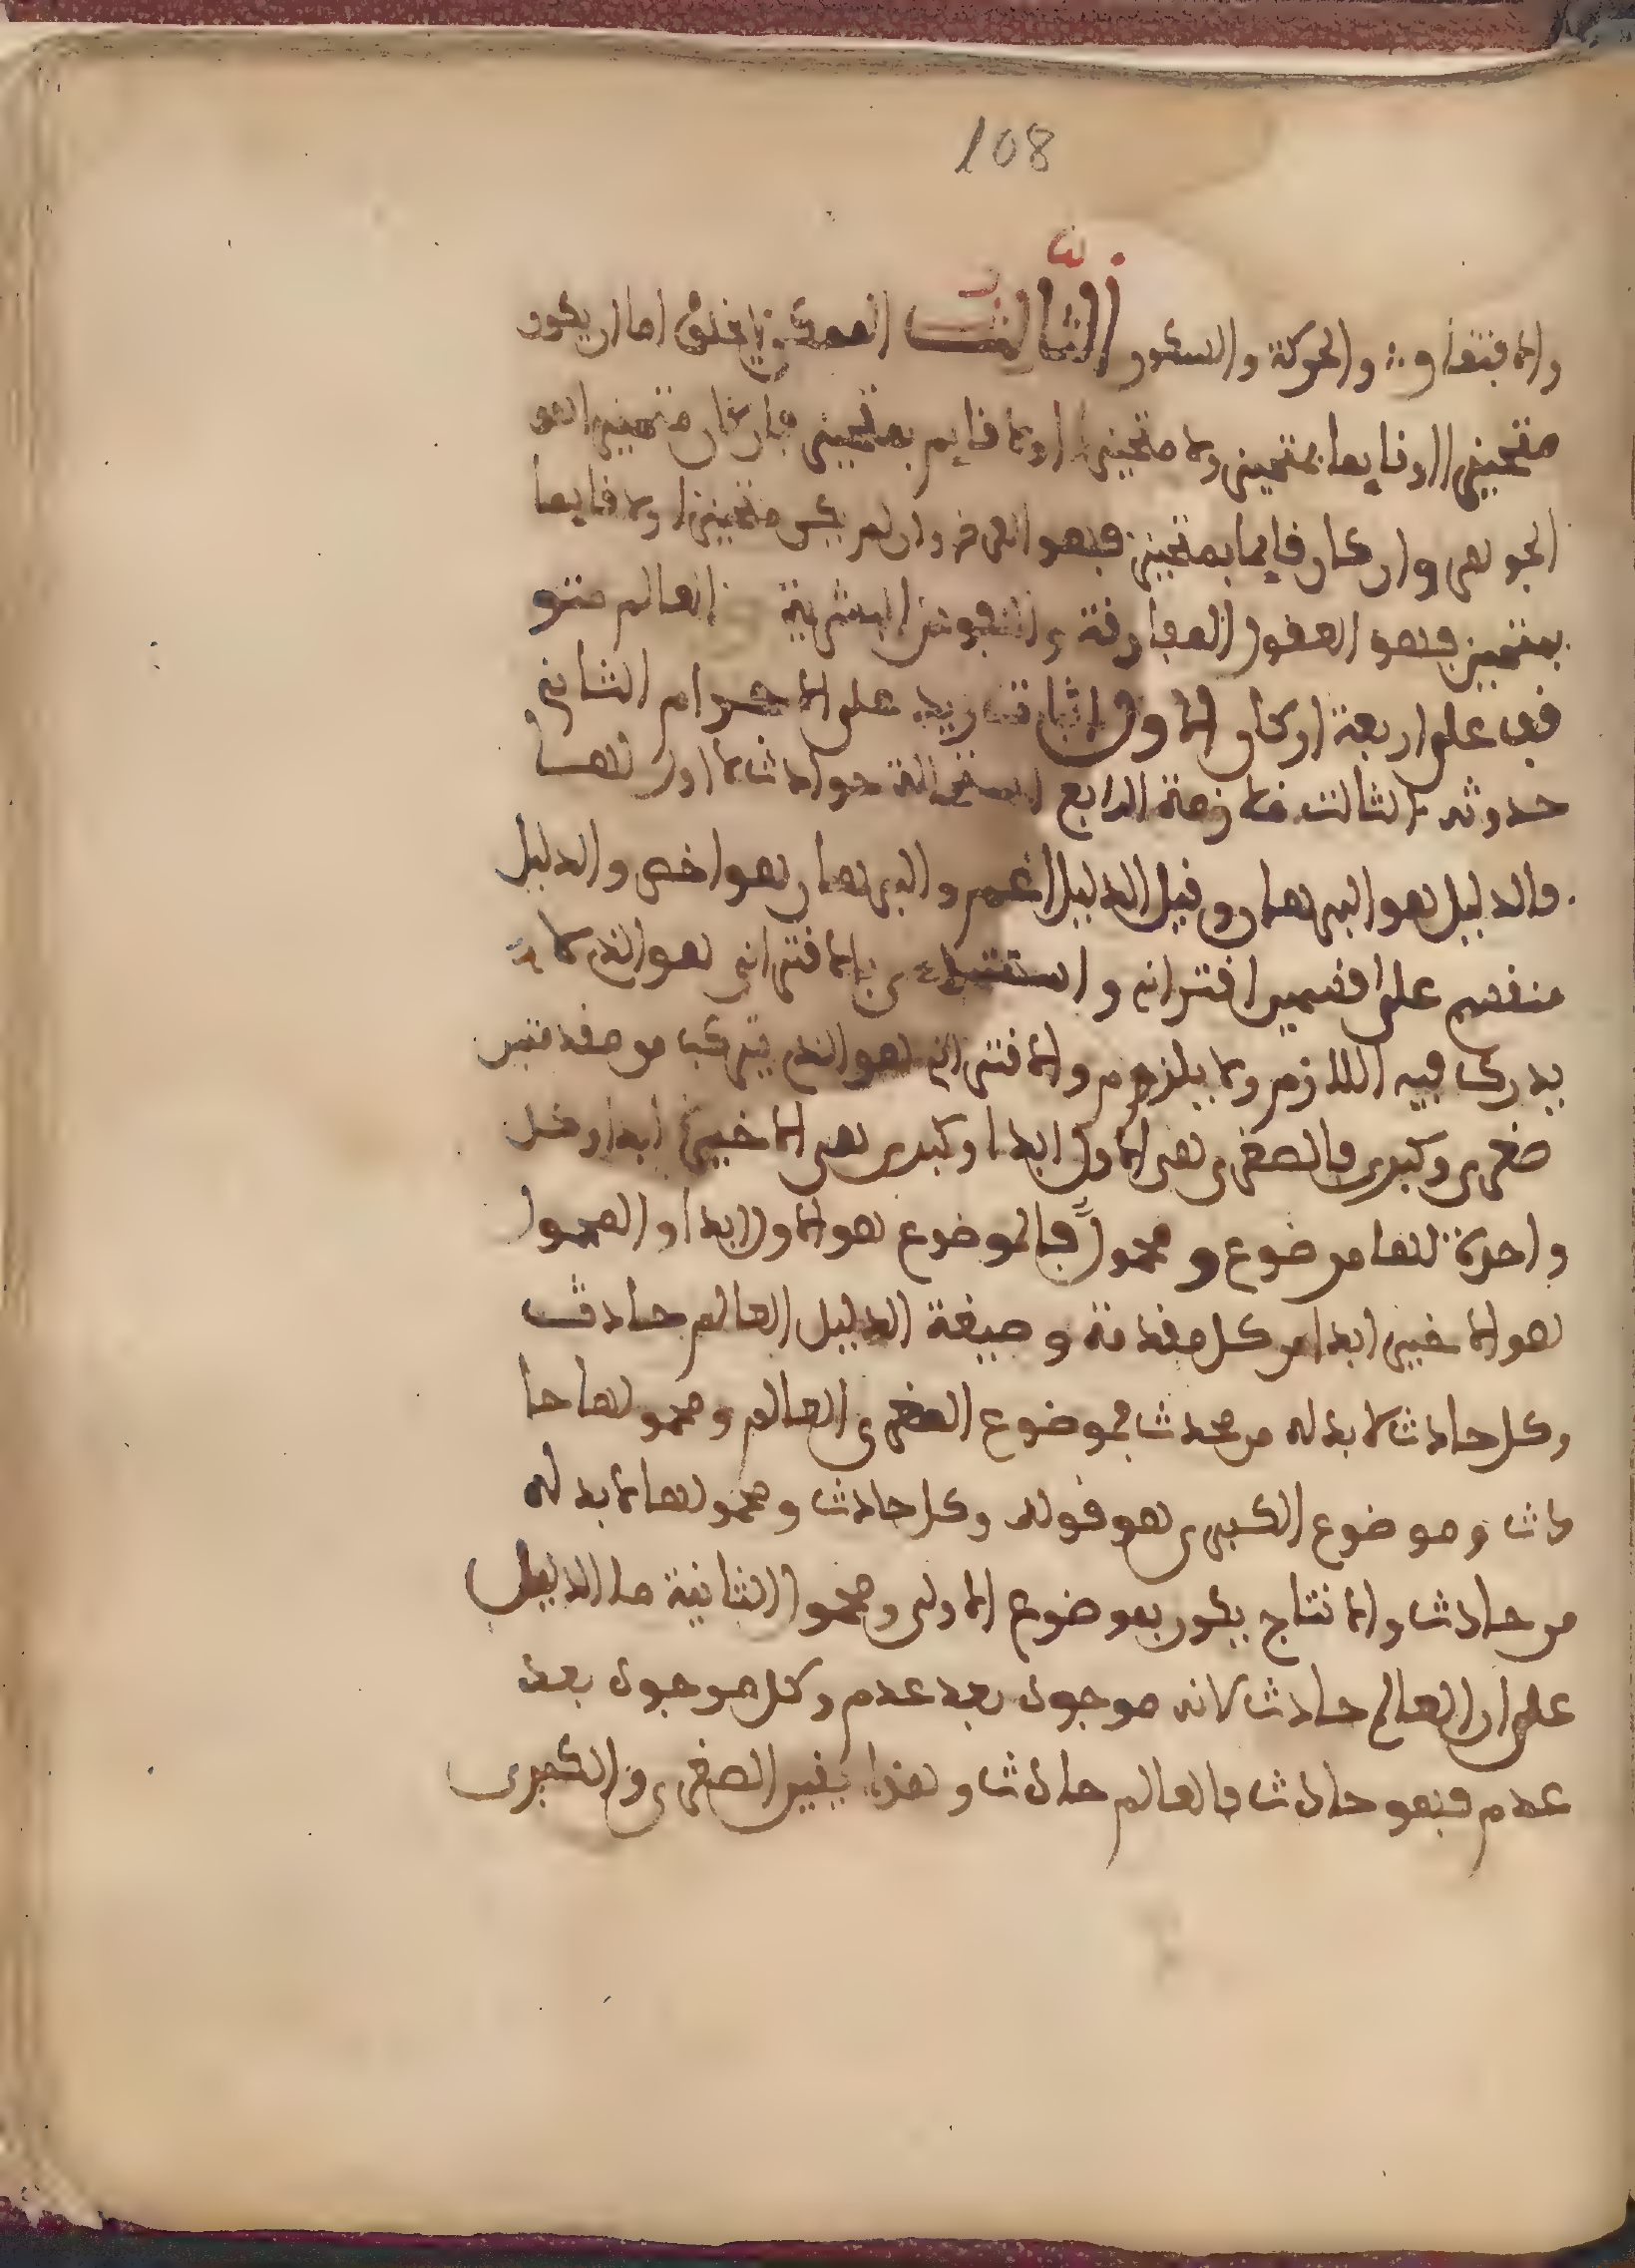 108
والافتفار والحركة والسكون الثالث الممكن لا يخلوا اما ان يكون
متحيزا او قايما بمتحيز ولا متحيزا ولا قايم بمتحيز فان كان متحيزا هو
الجوهر وان كان قايما بمتحيز فهو العرض وان لم يكن متحيزا ولا قايما
بمتحيز فهو العقول المفارقة والنفوس البشرية العالم متو
قف على اربعة اركان الاول اثبات زيد على الاجرام الثاني
حدوثه الثالث ملازمة الرابع استحالة حوادث لا اول لها
والدليل هو البرهان وقيل الدليل اعم والبرهان هو اخص والدليل
منقسم على قسمين اقتراني واستثناءي الاقتراني هو الذي لا
يدرك فيه اللازم ولا يلزوم والاقتراني هو الذي يتركب من مقدمتين
صغرى وكبرى فالصغرى هي الاول ابدا وكبرى هي الاخيرة ابدا وكل
واحدة لها موضوع ومحمول فالموضوع هو الاول ابدا والمحمول
هو الاخير ابدا من كل مقدمة وصيغة الدليل العالم حادث
وكل حادث لا بد له من محدث فموضوع الصغرى العالم ومحمولها حا
دث وموضوع الكبرى هو قوله وكل حادث ومحمولها لا بد له
من حادث والانتاج يكون بموضوع الاولى ومحمول الثانية ما الدليل
على ان العالم حادث لانه موجود بعد عدم وكل موجود بعد
عدم فهو حادث فالعالم حادث وهذا يغير الصغرى والكبرى